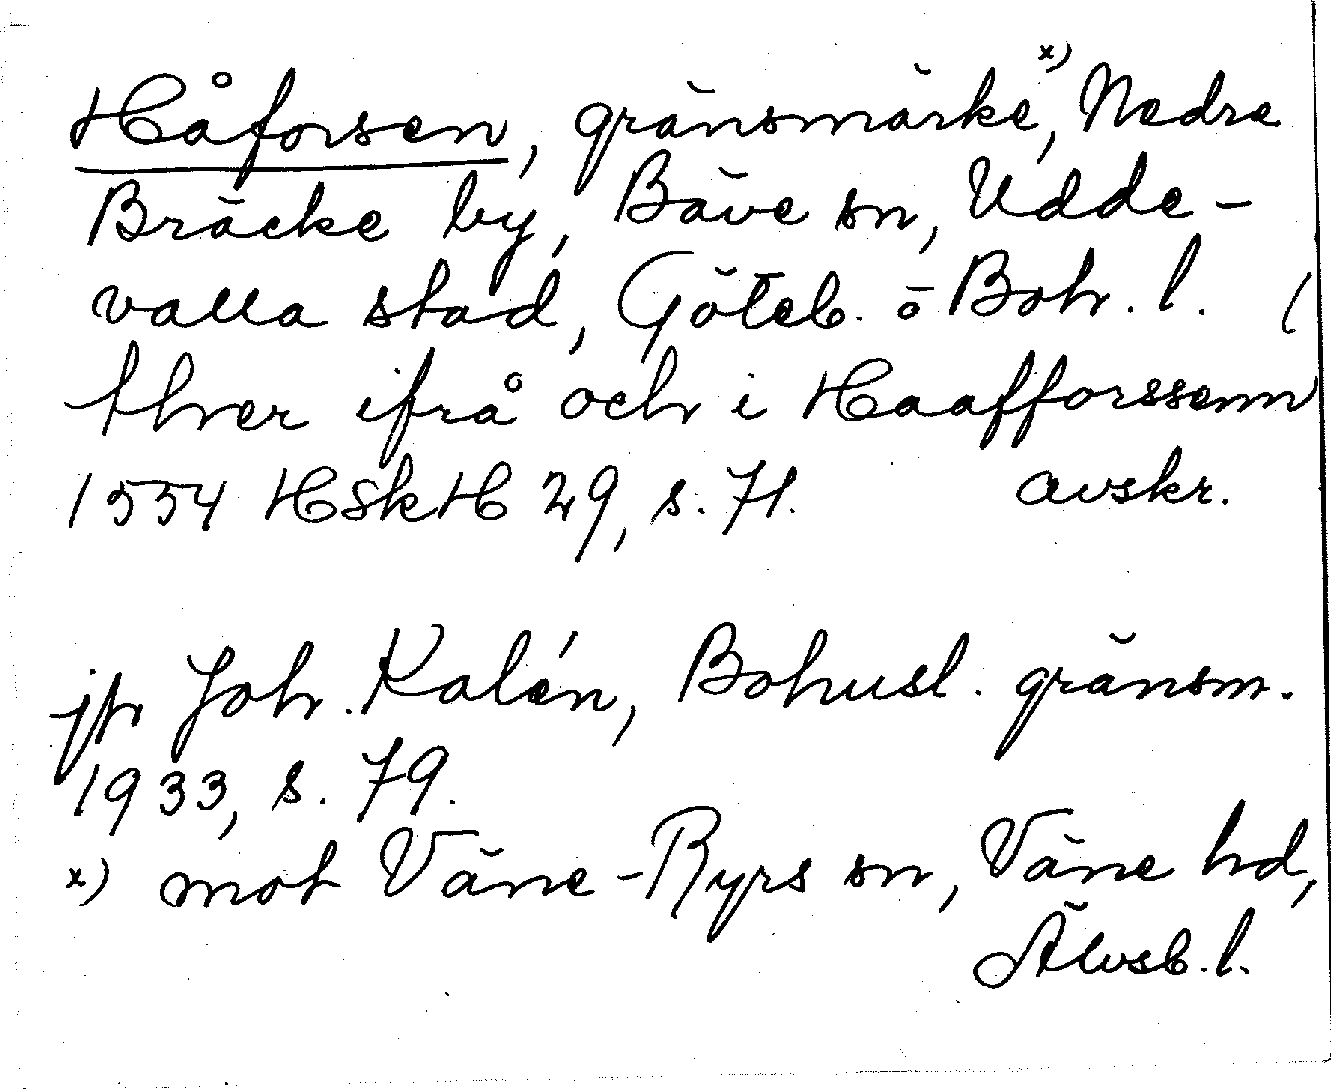 Håforsen, gränsmärke x), Nedre
Bräcke by, Bäve sn, Udde-
valla stad, Göteb. o Boh. l. (
thver ifrå och i Haafforssenn
1554 HSkH 29, s. 71. avskr.
jfr Joh. Kalén, Bohusl. gränsm.
1933, s. 79.
x) mot Väne-Ryrs sn, Väne hd,
Älvsb. l.